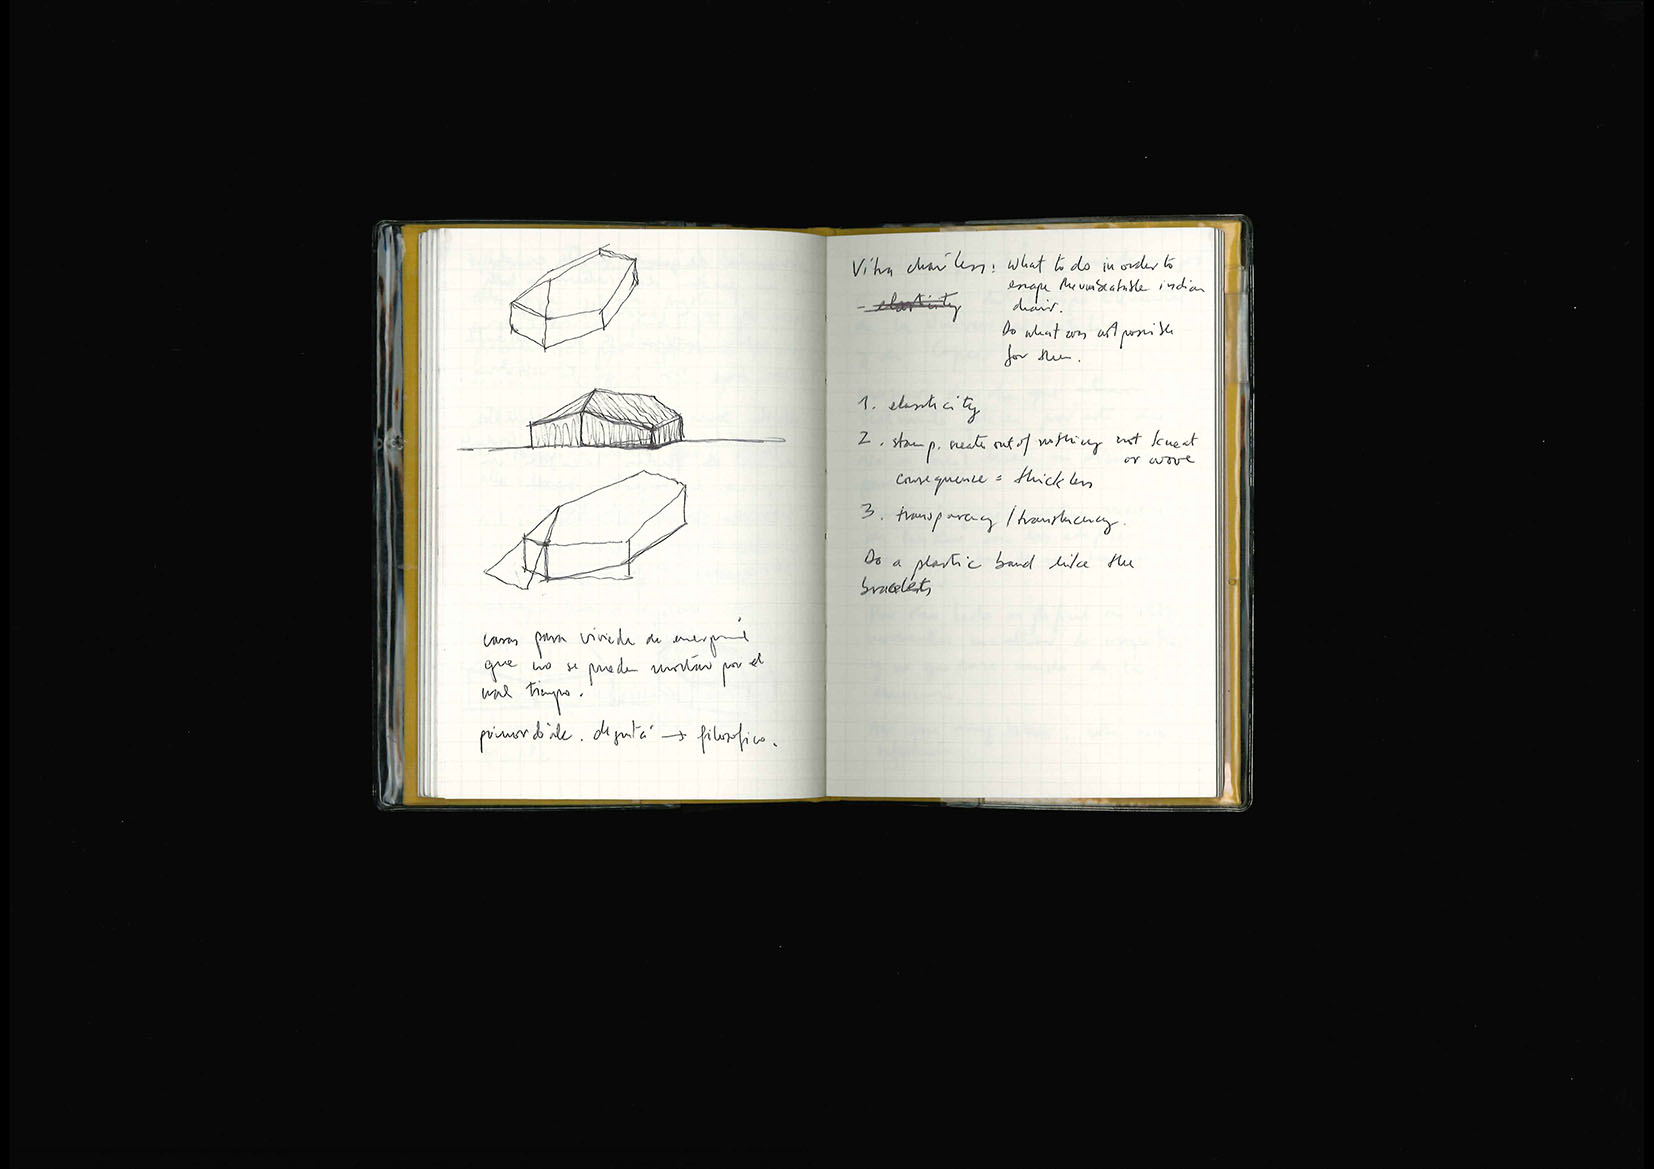 casas para vivienda de emergencia
que no se pueden montar por el
mal tiempo.
primordiale. dignità → filosofico.
Vitra chairless: what to do in order to
escape the unbeatable indian
chair.
- elasticity
Do what was not possible
for them.
1. elasticity
2. stamp, create out of nothing not
or wove
consequence = thickless
3. transparency / translucency.
Do a plastic band like the
bracelets